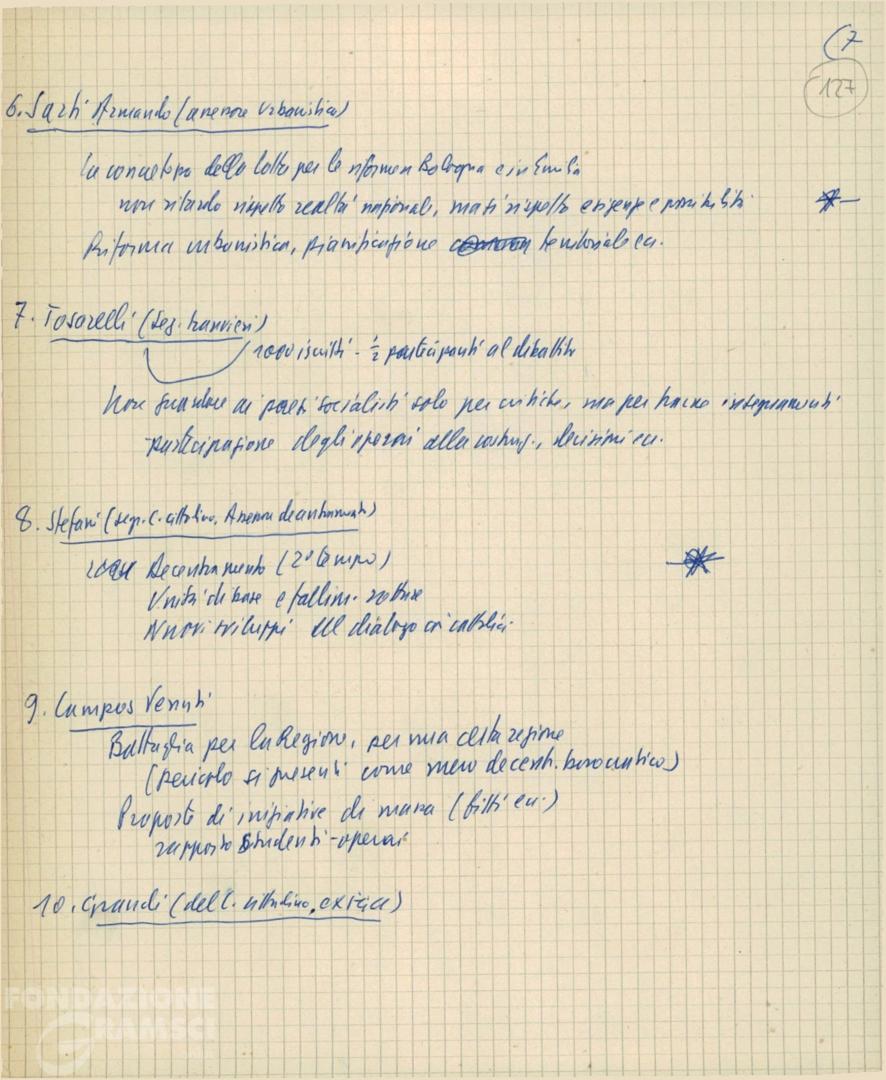 (7
127
6. Sarti Armando (assessore Urbanistica)
La concretezza della lotta per le riforme a Bologna e in Emilia
non ritardo rispetto realtà nazionali, ma sì rispetto esigenze e possibilità
Riforma urbanistica, pianificazione territoriale ecc.
7. Tosarelli (seg. tranvieri)
1000 iscritti - ½ partecipanti al dibattito
Non guardare ai paesi socialisti solo per critiche, ma per trarne insegnamenti
Partecipazione degli operai alla costruz., decisioni ecc.
8. Stefani (segr. C. cittadino, Assessore decentramento)
Decentramento (2° tempo)
Unità di base e fallim. rotture
Nuovi sviluppi del dialogo coi cattolici
9. Campos Venuti
Battaglia per la Regione, per una certa regione
(pericolo si presenti come mero decentr. burocratico)
Proposte di iniziative di massa (fitti ecc.)
rapporto studenti-operai
10. Grandi (del C. cittadino, ex
FONDAZIONE
GRAMSCI